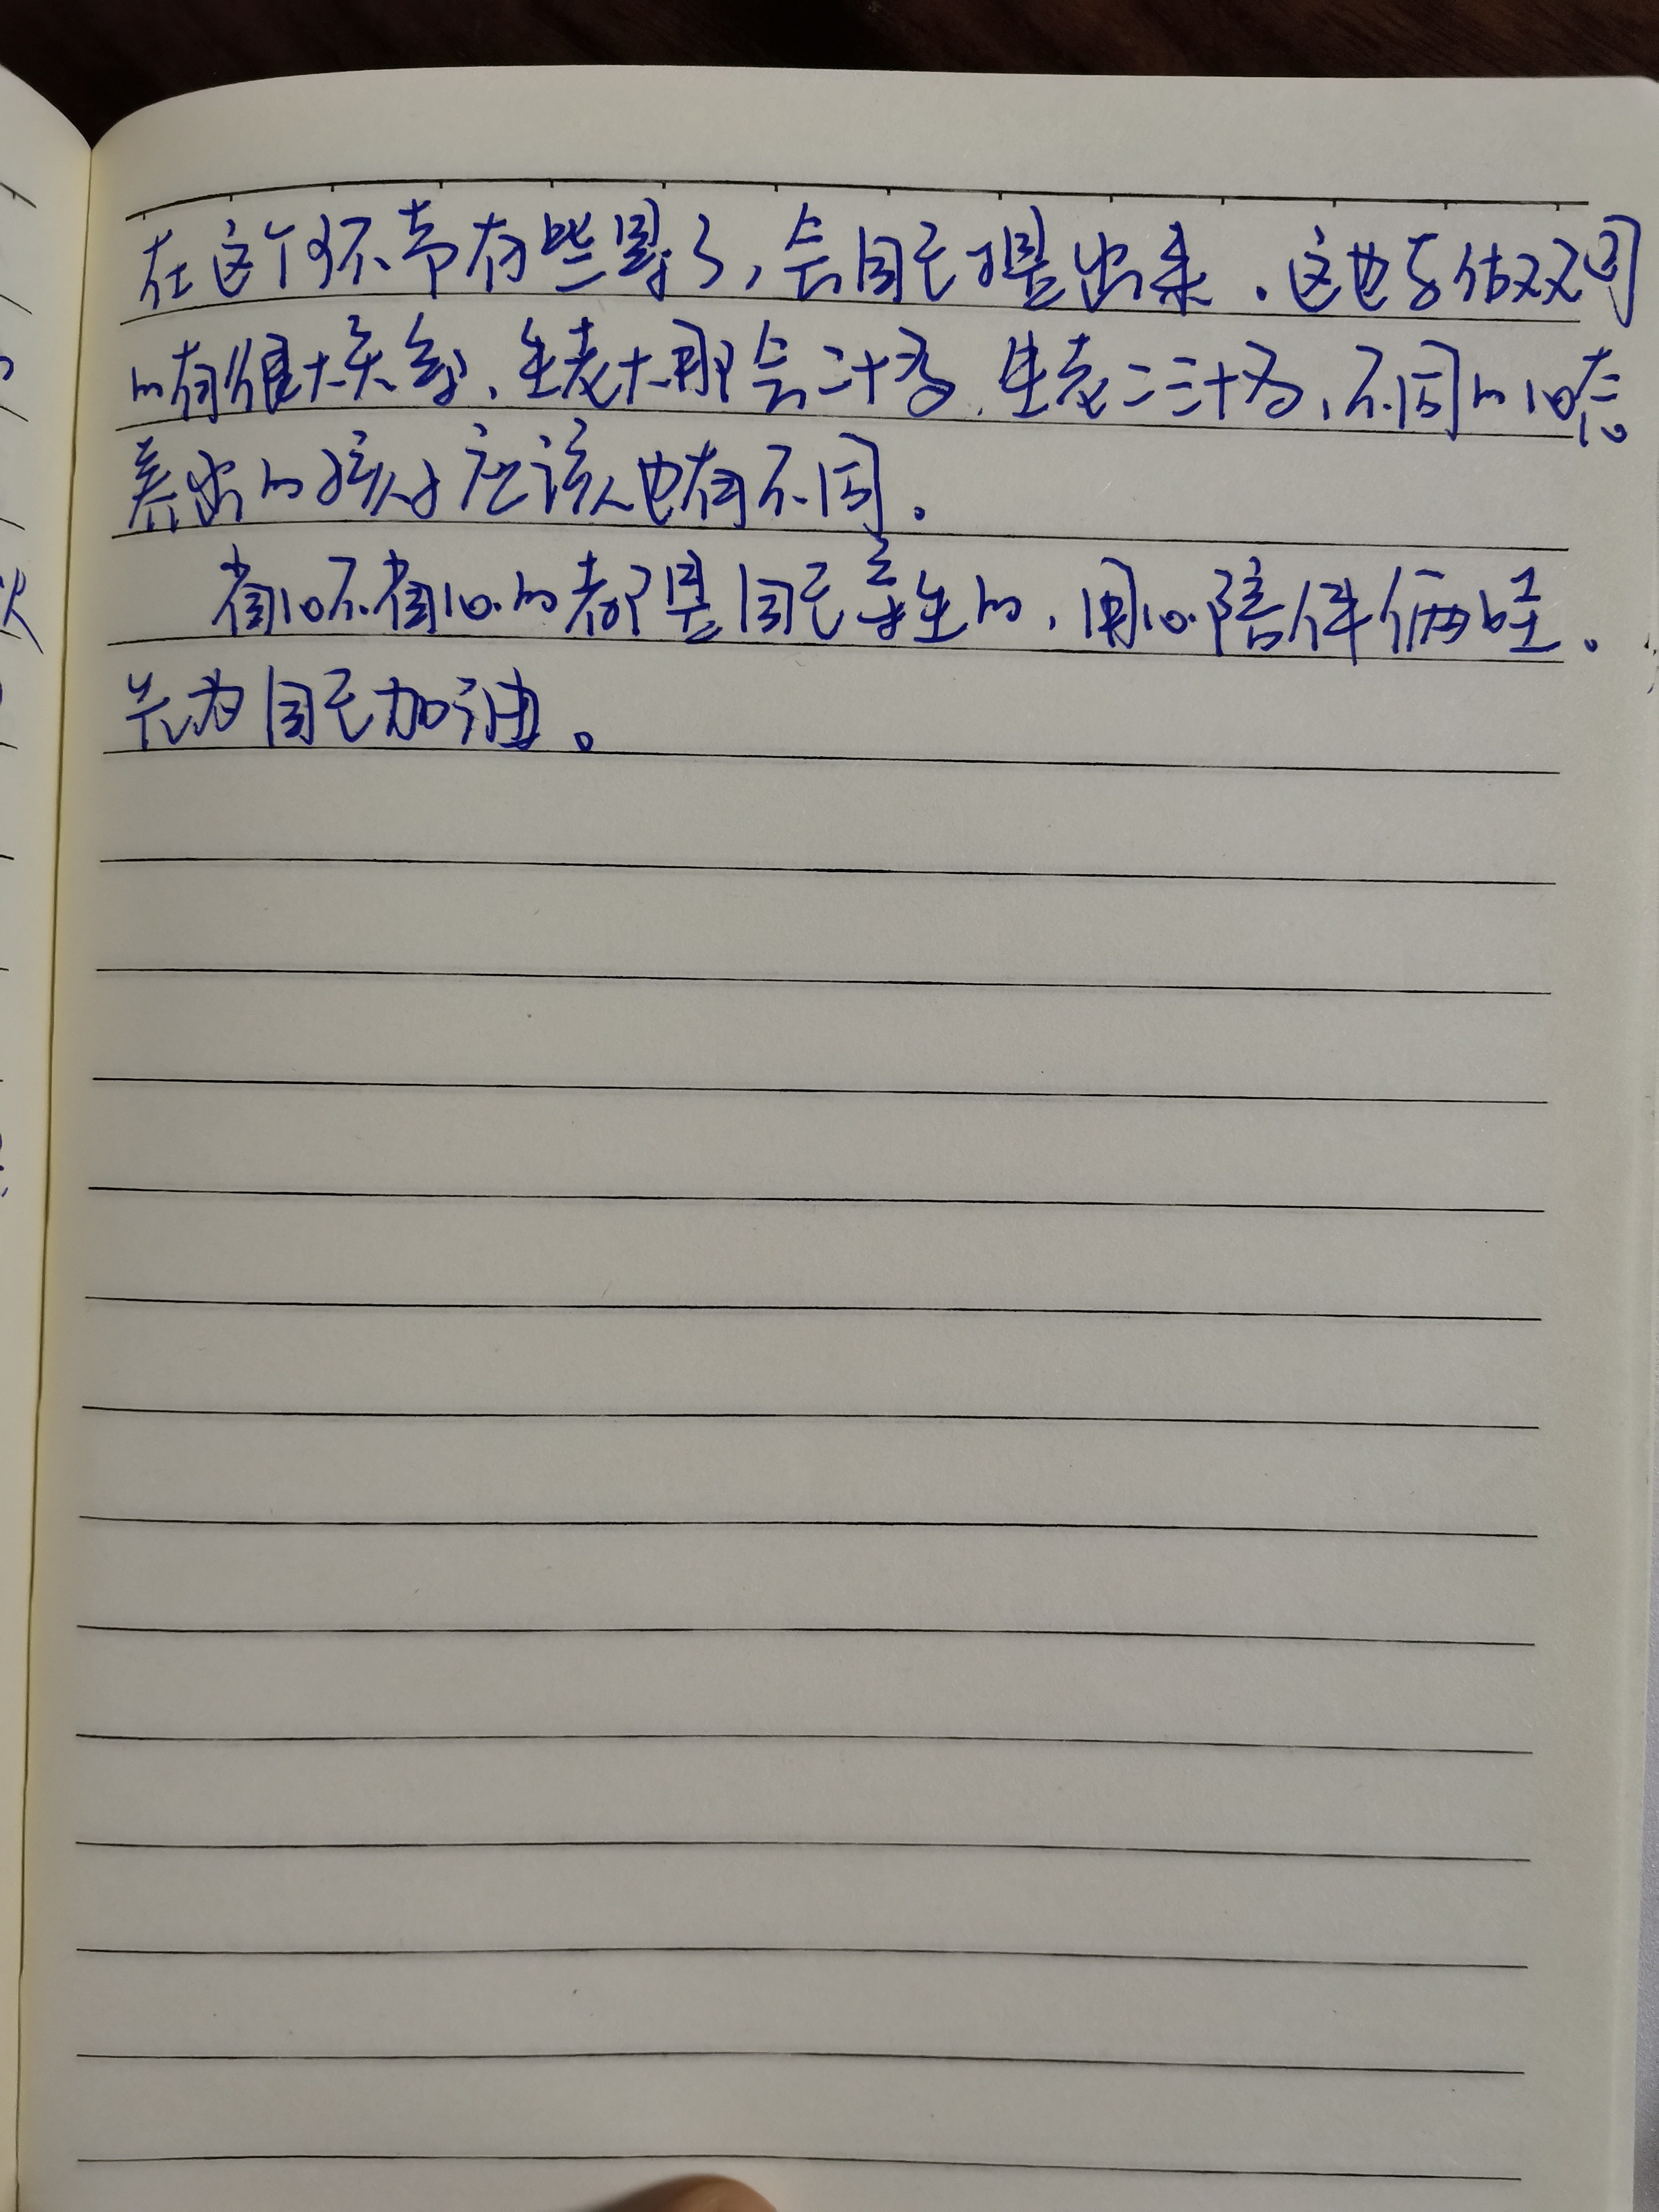 在这个环节有些累了，会自己提出来。这也与做双司
的有很大关系，生老大那会二十多，生老二三十多，不同的心态
养出的孩子应该也有不同。
省心不省心的都是自己亲生的，用心陪伴俩娃。
为自己加油。